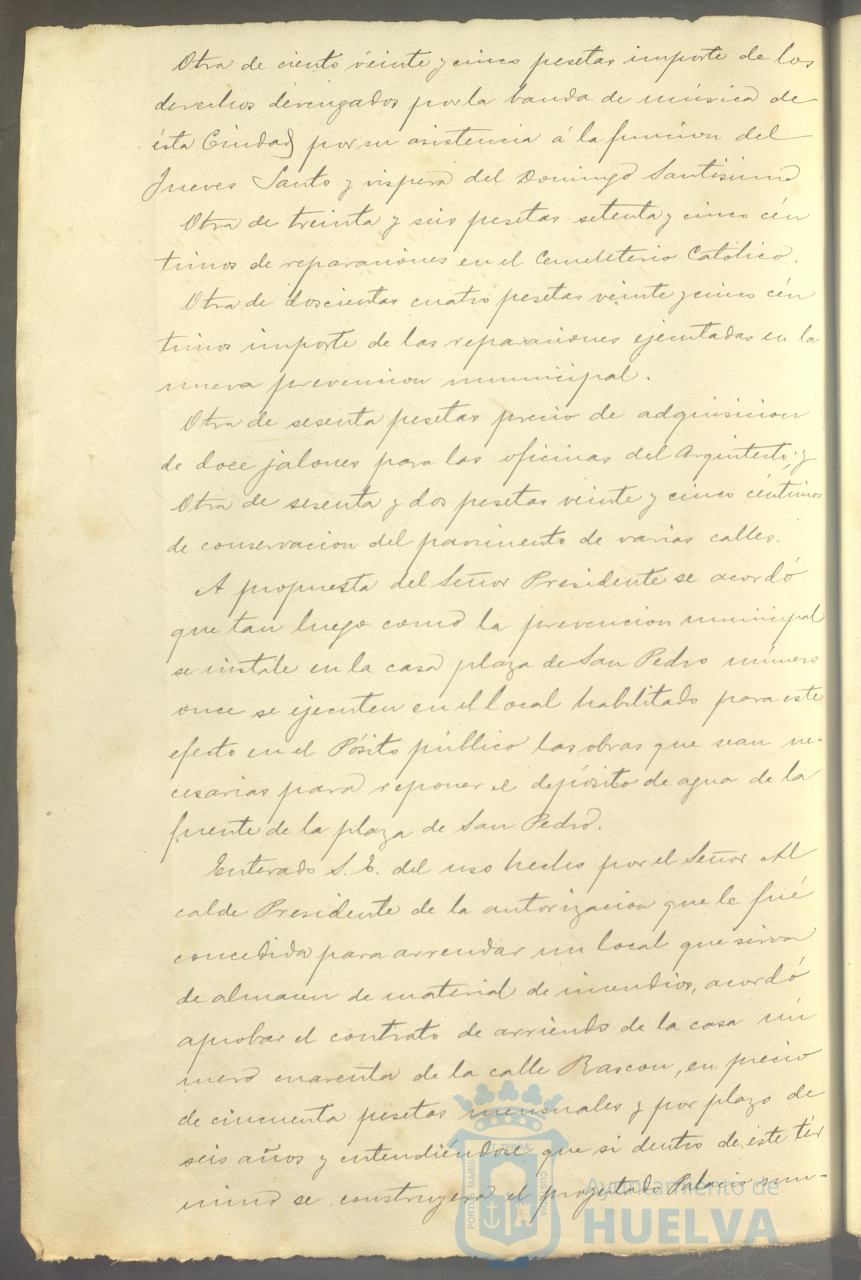 Otra de ciento veinte y cinco pesetas importe de los
derechos devengados por la banda de música de
ésta Ciudad por su asistencia á la funcion del
Jueves Santo y vispera del Domingo Santisimo
Otra de treinta y seis pesetas setenta y cinco cén
timos de reparaciones en el Cementerio Católico.
Otra de doscientas cuatro pesetas veinte y cinco cén
timos importe de las reparaciones ejecutadas en la
nueva prevencion municipal.
Otra de sesenta pesetas precio de adquisicion
de doce jalones para las oficinas del Arquitecto; y
Otra de sesenta y dos pesetas veinte y cinco céntimos
de conservacion del pavimento de varias calles.
A propuesta del Señor Presidente se acordó
que tan luego como la prevencion municipal
se instale en la casa plaza de San Pedro número
once se ejecuten en el local habilitado para este
efecto en el Pósito público las obras que sean ne-
cesarias para reponer el depósito de agua de la
fuente de la plaza de San Pedro.
Enterado S. E. del uso hecho por el Señor Al
calde Presidente de la autorizacion que le fué
concedida para arrendar un local que sirva
de almacen de material de incendios, acordó
aprobar el contrato de arriendo de la casa nú
mero cuarenta de la calle Rascon, en precio
de cincuenta pesetas mensuales y por plazo de
seis años y entendiéndose que si dentro de éste tér
mino se construyera el proyectado Palacio mu-
PORTUS MARIS ET TERRAE CUSTODIA
Ayuntamiento de
HUELVA